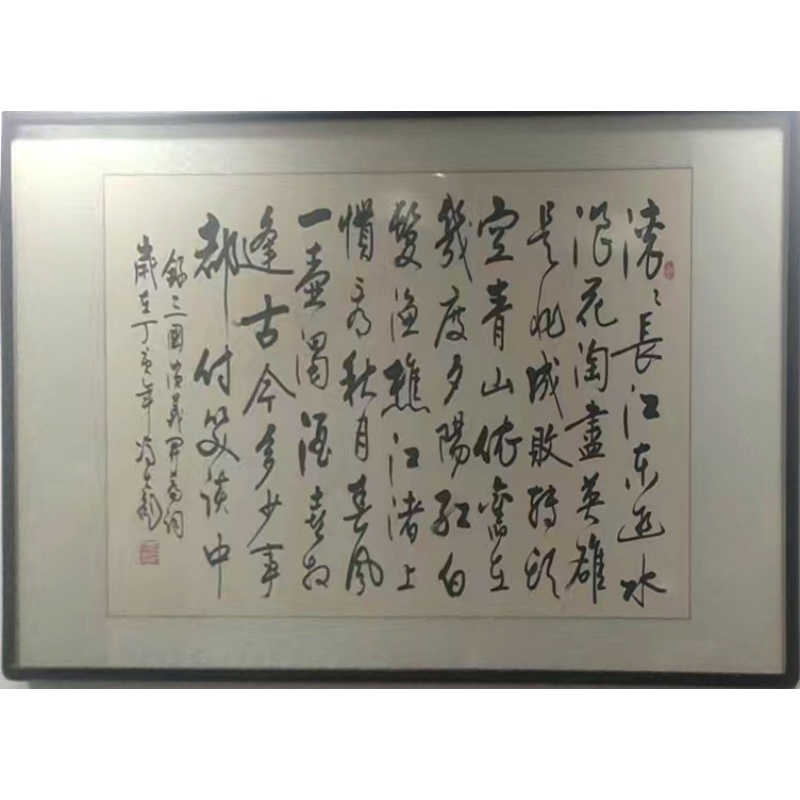 滚〻長江东逝水
浪花淘盡英雄
是非成敗转头
空青山依舊在
幾度夕陽红白
髮渔樵江渚上
慣看秋月春風
一壶濁酒喜相
逢古今多少事
都付笑谈中
録三國演義开篇词
歲在丁亥年